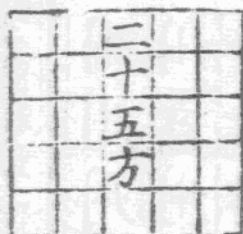 二十五方